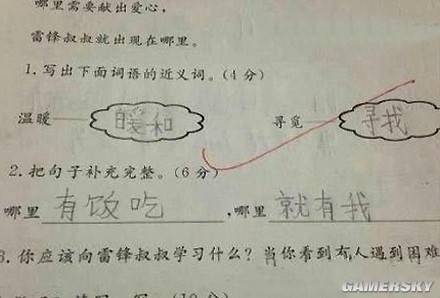 哪里需要献出爱心，
雷锋叔叔就出现在哪里。
1.写出下面词语的近义词。(4分)
温暖 暖和 寻觅 寻找
2.把句子补充完整。(6分)
哪里 有饭吃 ,哪里 就有我
3.你应该向雷锋叔叔学习什么？当你看到有人遇到困难
GAMERSKY